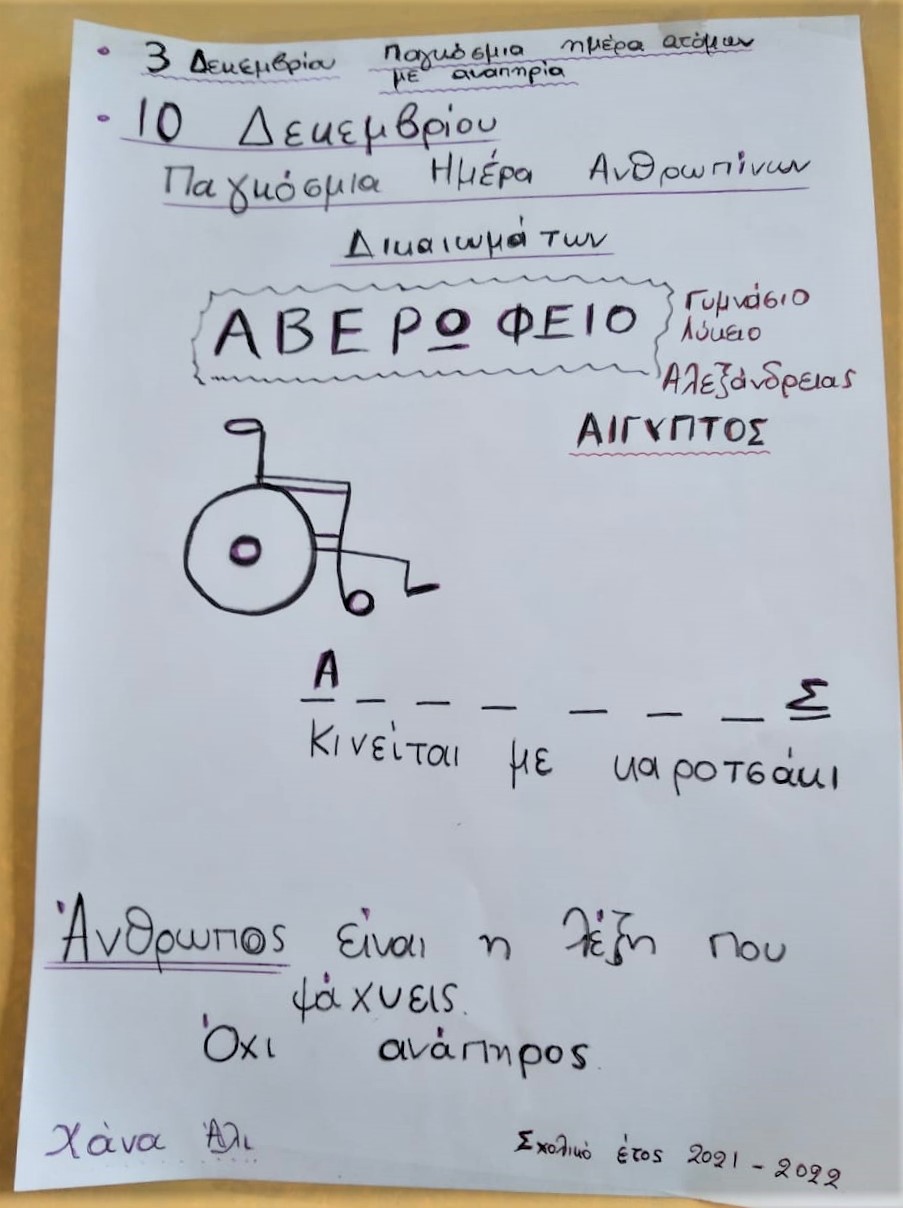 • 3 Δεκεμβρίου Παγκόσμια ημέρα ατόμων
με αναπηρία
• 10 Δεκεμβρίου
Παγκόσμια Ημέρα Ανθρωπίνων
Δικαιωμάτων
ΑΒΕΡΩΦΕΙΟ
Γυμνάσιο
Λύκειο
Αλεξάνδρειας
ΑΙΓΥΠΤΟΣ
Α _ _ _ _ _ _ Σ
Κινείται με καροτσάκι
Άνθρωπος είναι η λέξη που
ψάχνεις.
Όχι ανάπηρος.
Χάνα Άλι
Σχολικό έτος 2021 - 2022